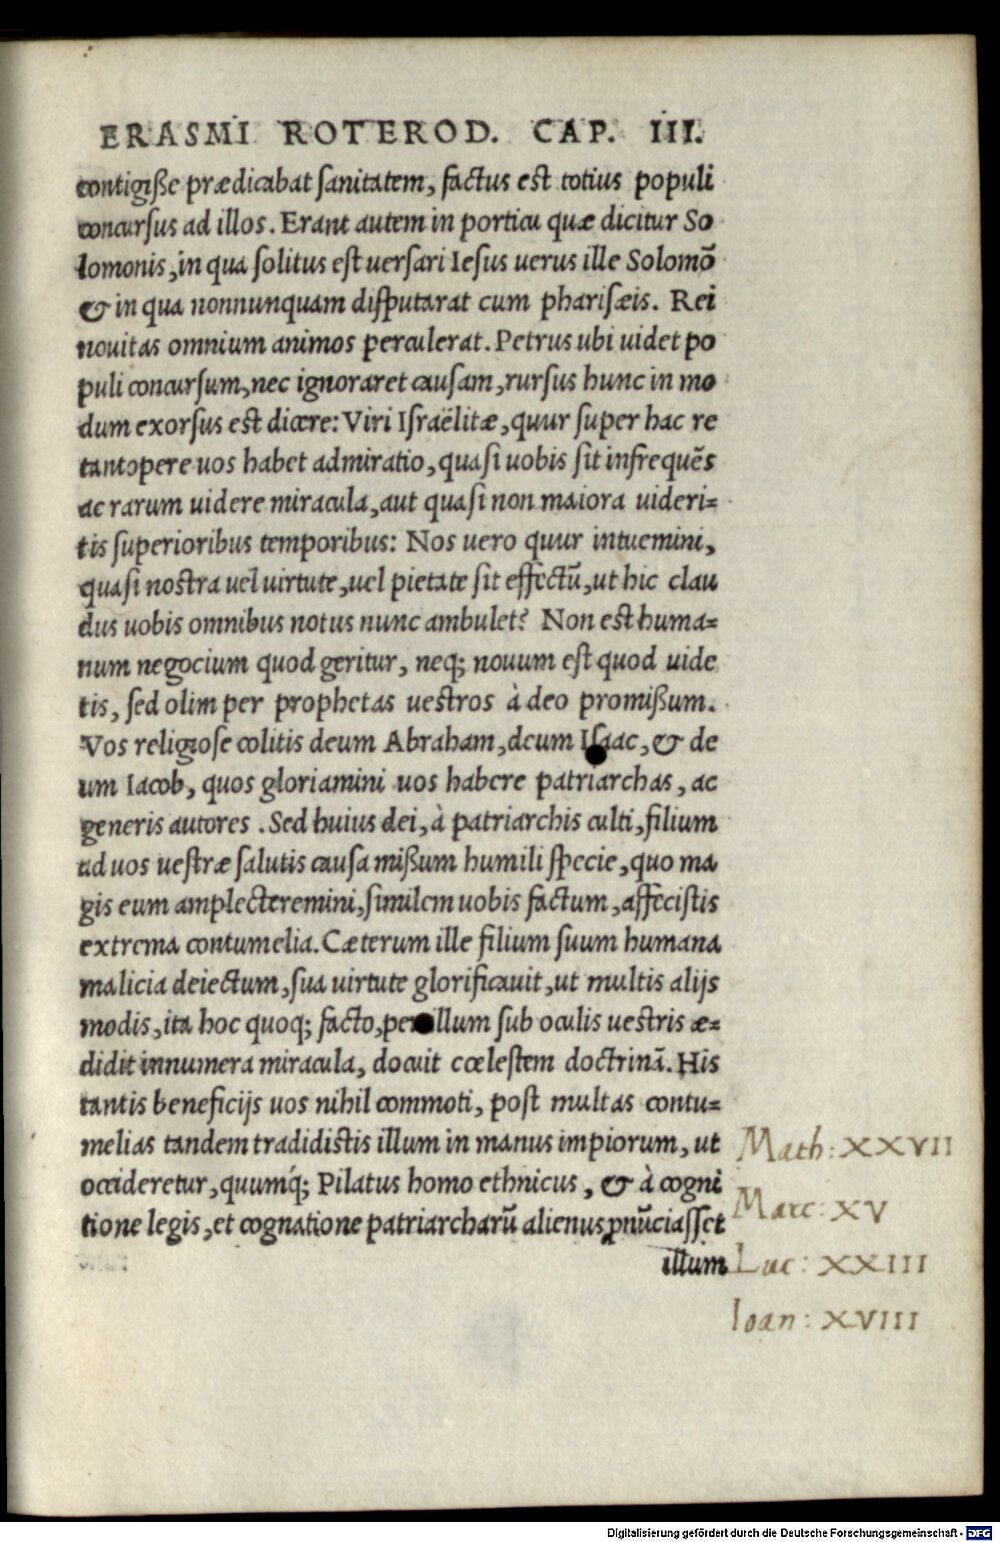 ERASMI ROTEROD. CAP. III.
contigiße prædicabat sanitatem, factus est totius populi
concursus ad illos. Erant autem in porticu quæ dicitur So
lomonis, in qua solitus est uersari Iesus uerus ille Solomō
& in qua nonnunquam disputarat cum pharisæis. Rei
nouitas omnium animos perculerat. Petrus ubi uidet po
puli concursum, nec ignoraret causam, rursus hunc in mo
dum exorsus est dicere: Viri Israëlitæ, quur super hac re
tantopere uos habet admiratio, quasi uobis sit infrequēs
ac rarum uidere miracula, aut quasi non maiora uideri-
tis superioribus temporibus: Nos uero quur intuemini,
quasi nostra uel uirtute, uel pietate sit effectū, ut hic clau
dus uobis omnibus notus nunc ambulet? Non est huma-
num negocium quod geritur, neq; nouum est quod uide
tis, sed olim per prophetas uestros à deo promißum.
Vos religiose colitis deum Abraham, deum Isaac, & de
um Iacob, quos gloriamini uos habere patriarchas, ac
generis autores. Sed huius dei, à patriarchis culti, filium
ad uos uestræ salutis causa mißum humili specie, quo ma
gis eum amplecteremini, similem uobis factum, affecistis
extrema contumelia. Cæterum ille filium suum humana
malicia deiectum, sua uirtute glorificauit, ut multis alijs
modis, ita hoc quoq; facto, per illum sub oculis uestris æ-
didit innumera miracula, docuit cœlestem doctrinā. His
tantis beneficijs uos nihil commoti, post multas contu-
melias tandem tradidistis illum in manus impiorum, ut
occideretur, quumq́; Pilatus homo ethnicus, & à cogni
tione legis, et cognatione patriarcharū alienus ꝓnūciasset
illum
Math: XXVII
Marc: XV
Luc: XXIII
Ioan: XVIII
Digitalisierung gefördert durch die Deutsche Forschungsgemeinschaft - DFG